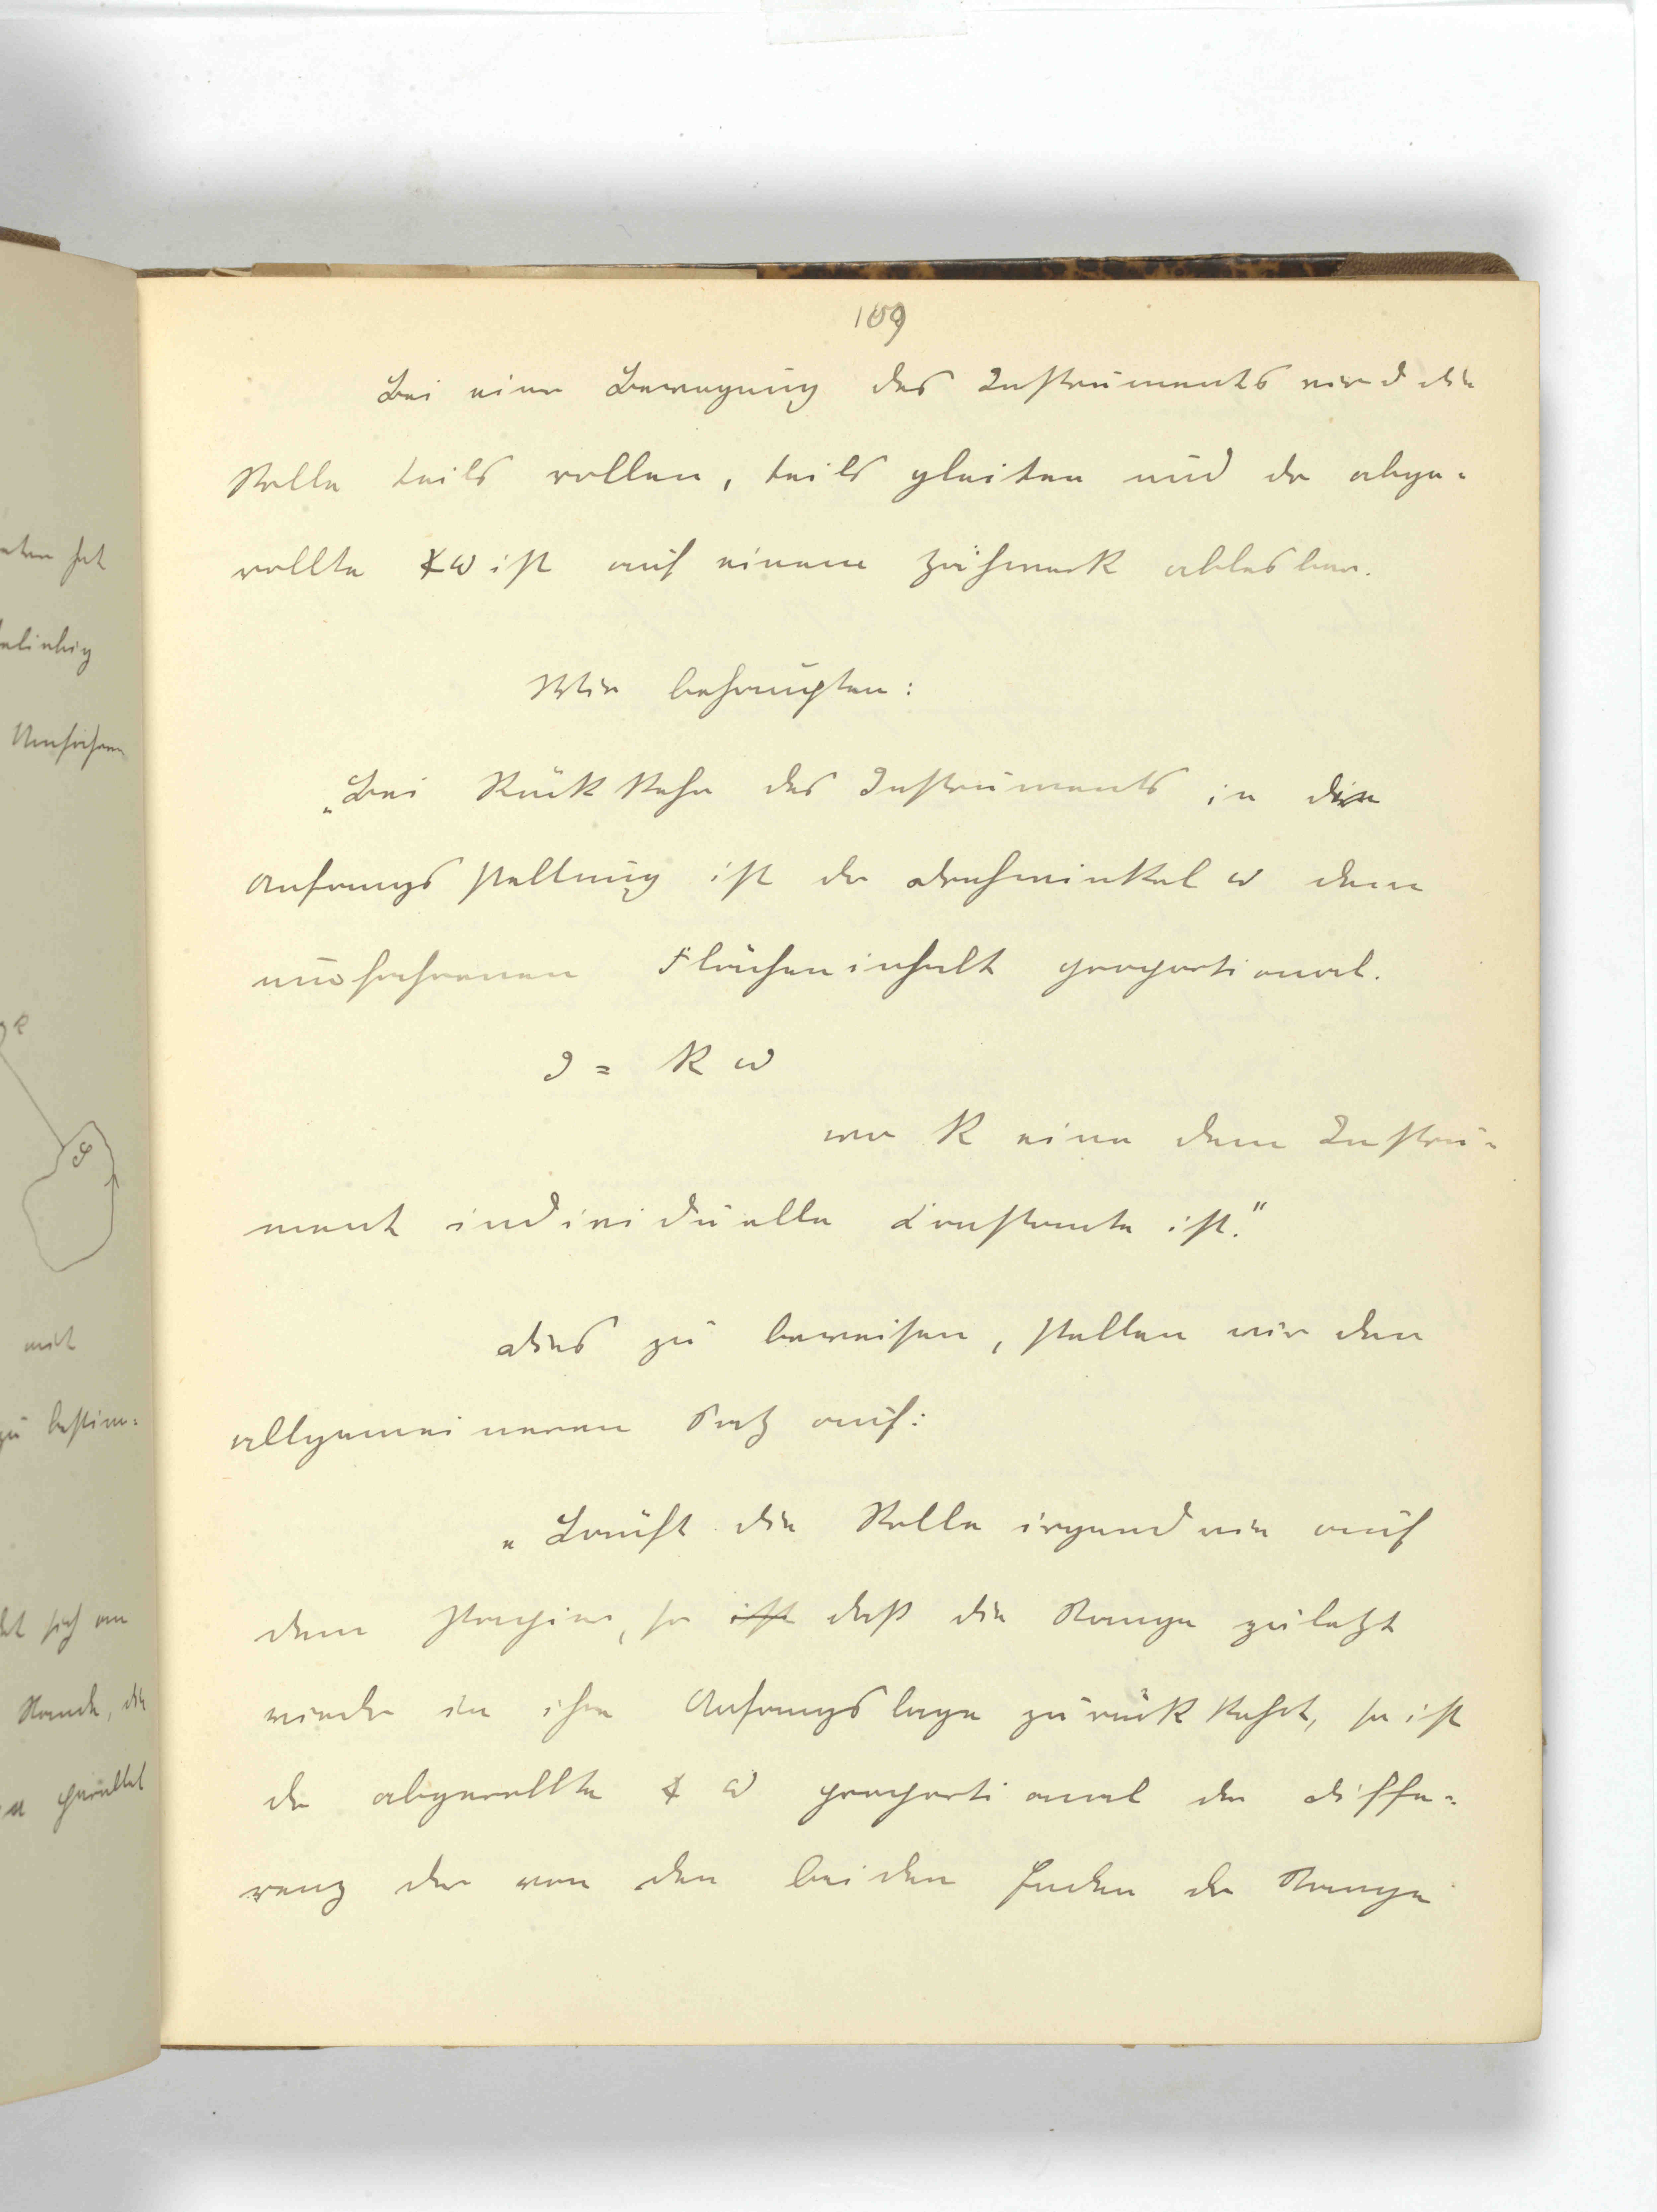 109
Bei einer Bewegung des Instruments wird die
Rolle teils rollen, teils gleiten und der abge-
rollte ∢ ω ist auf einem Zählwerk ablesbar.
Wir behaupten:
„Bei Rückkehr des Instruments in die
Anfangsstellung ist der Drehwinkel ω dem
umfahrenen Flächeninhalt proportional.
J = k ω
wo k eine dem Instru-
ment individuelle Constante ist."
Dies zu beweisen, stellen wir den
allgemeineren Satz auf:
„Läuft die Rolle irgendwie auf
dem Papier, so ist daß die Stange zuletzt
wieder in ihre Anfangslage zurückkehrt, so ist
der abgerollte ∢ ω proportional der Diffe-
renz der von den beiden Enden der Stange
hat
beliebig
Umfahren
k
J
mit
zu bestim-
det sich am
Rande, die
parallel